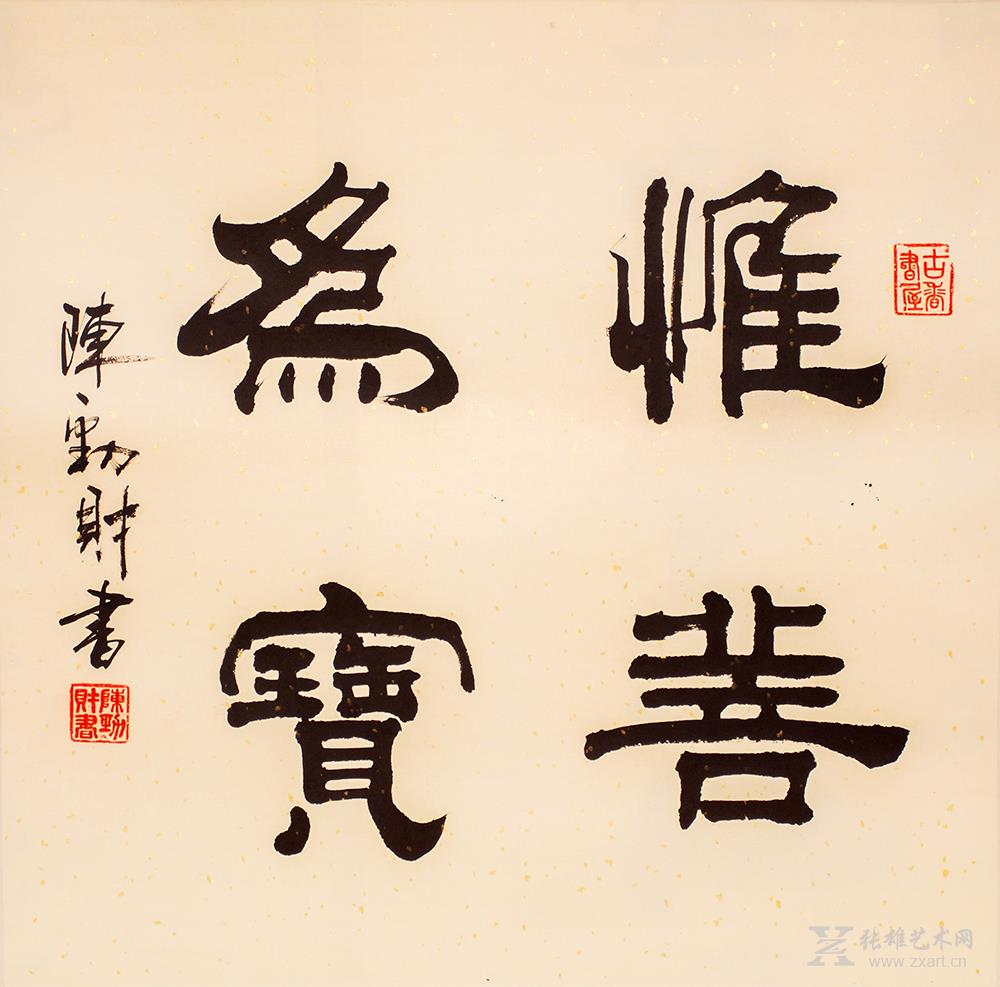 惟善
為寶
陳勁財書
古香書屋
陳勁財書
张雄艺术网
www.zxart.cn